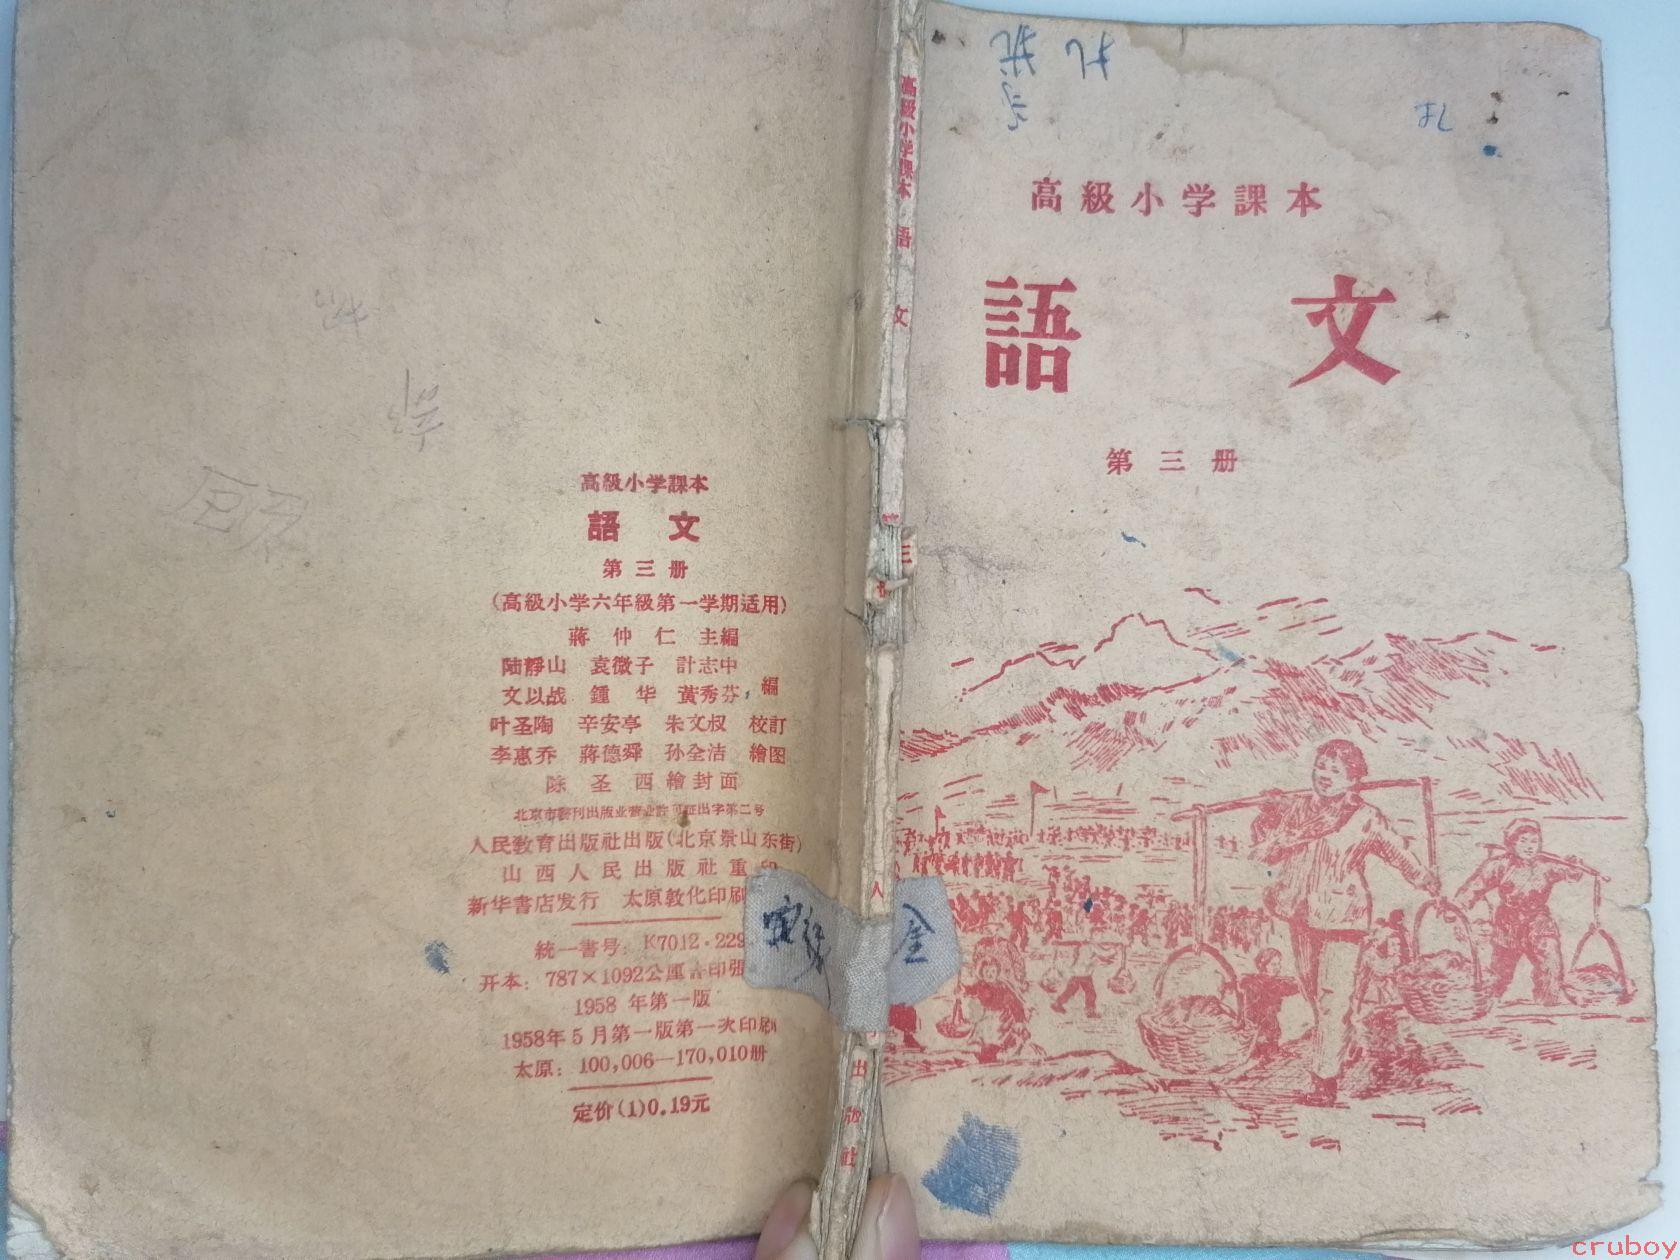 高級小学課本
語 文
第三册
高級小学課本 語 文 第三册
人
出版社
高級小学課本
語 文
第三册
(高級小学六年級第一学期适用)
蔣仲仁 主編
陆靜山 袁微子 計志中
文以战 鍾华 黃秀芬 編
叶圣陶 辛安亭 朱文叔 校訂
李惠乔 蔣德舜 孙全洁 繪图
陈圣西繪封面
北京市書刊出版业营业許可証出字第二号
人民敎育出版社出版(北京景山东街)
山西人民出版社重印
新华書店发行 太原敎化印刷
統一書号: K7012·229
开本: 787×1092公厘 印張
1958 年第一版
1958年5月第一版第一次印刷
太原: 100,006—170,010册
定价(1)0.19元
金
cruboy